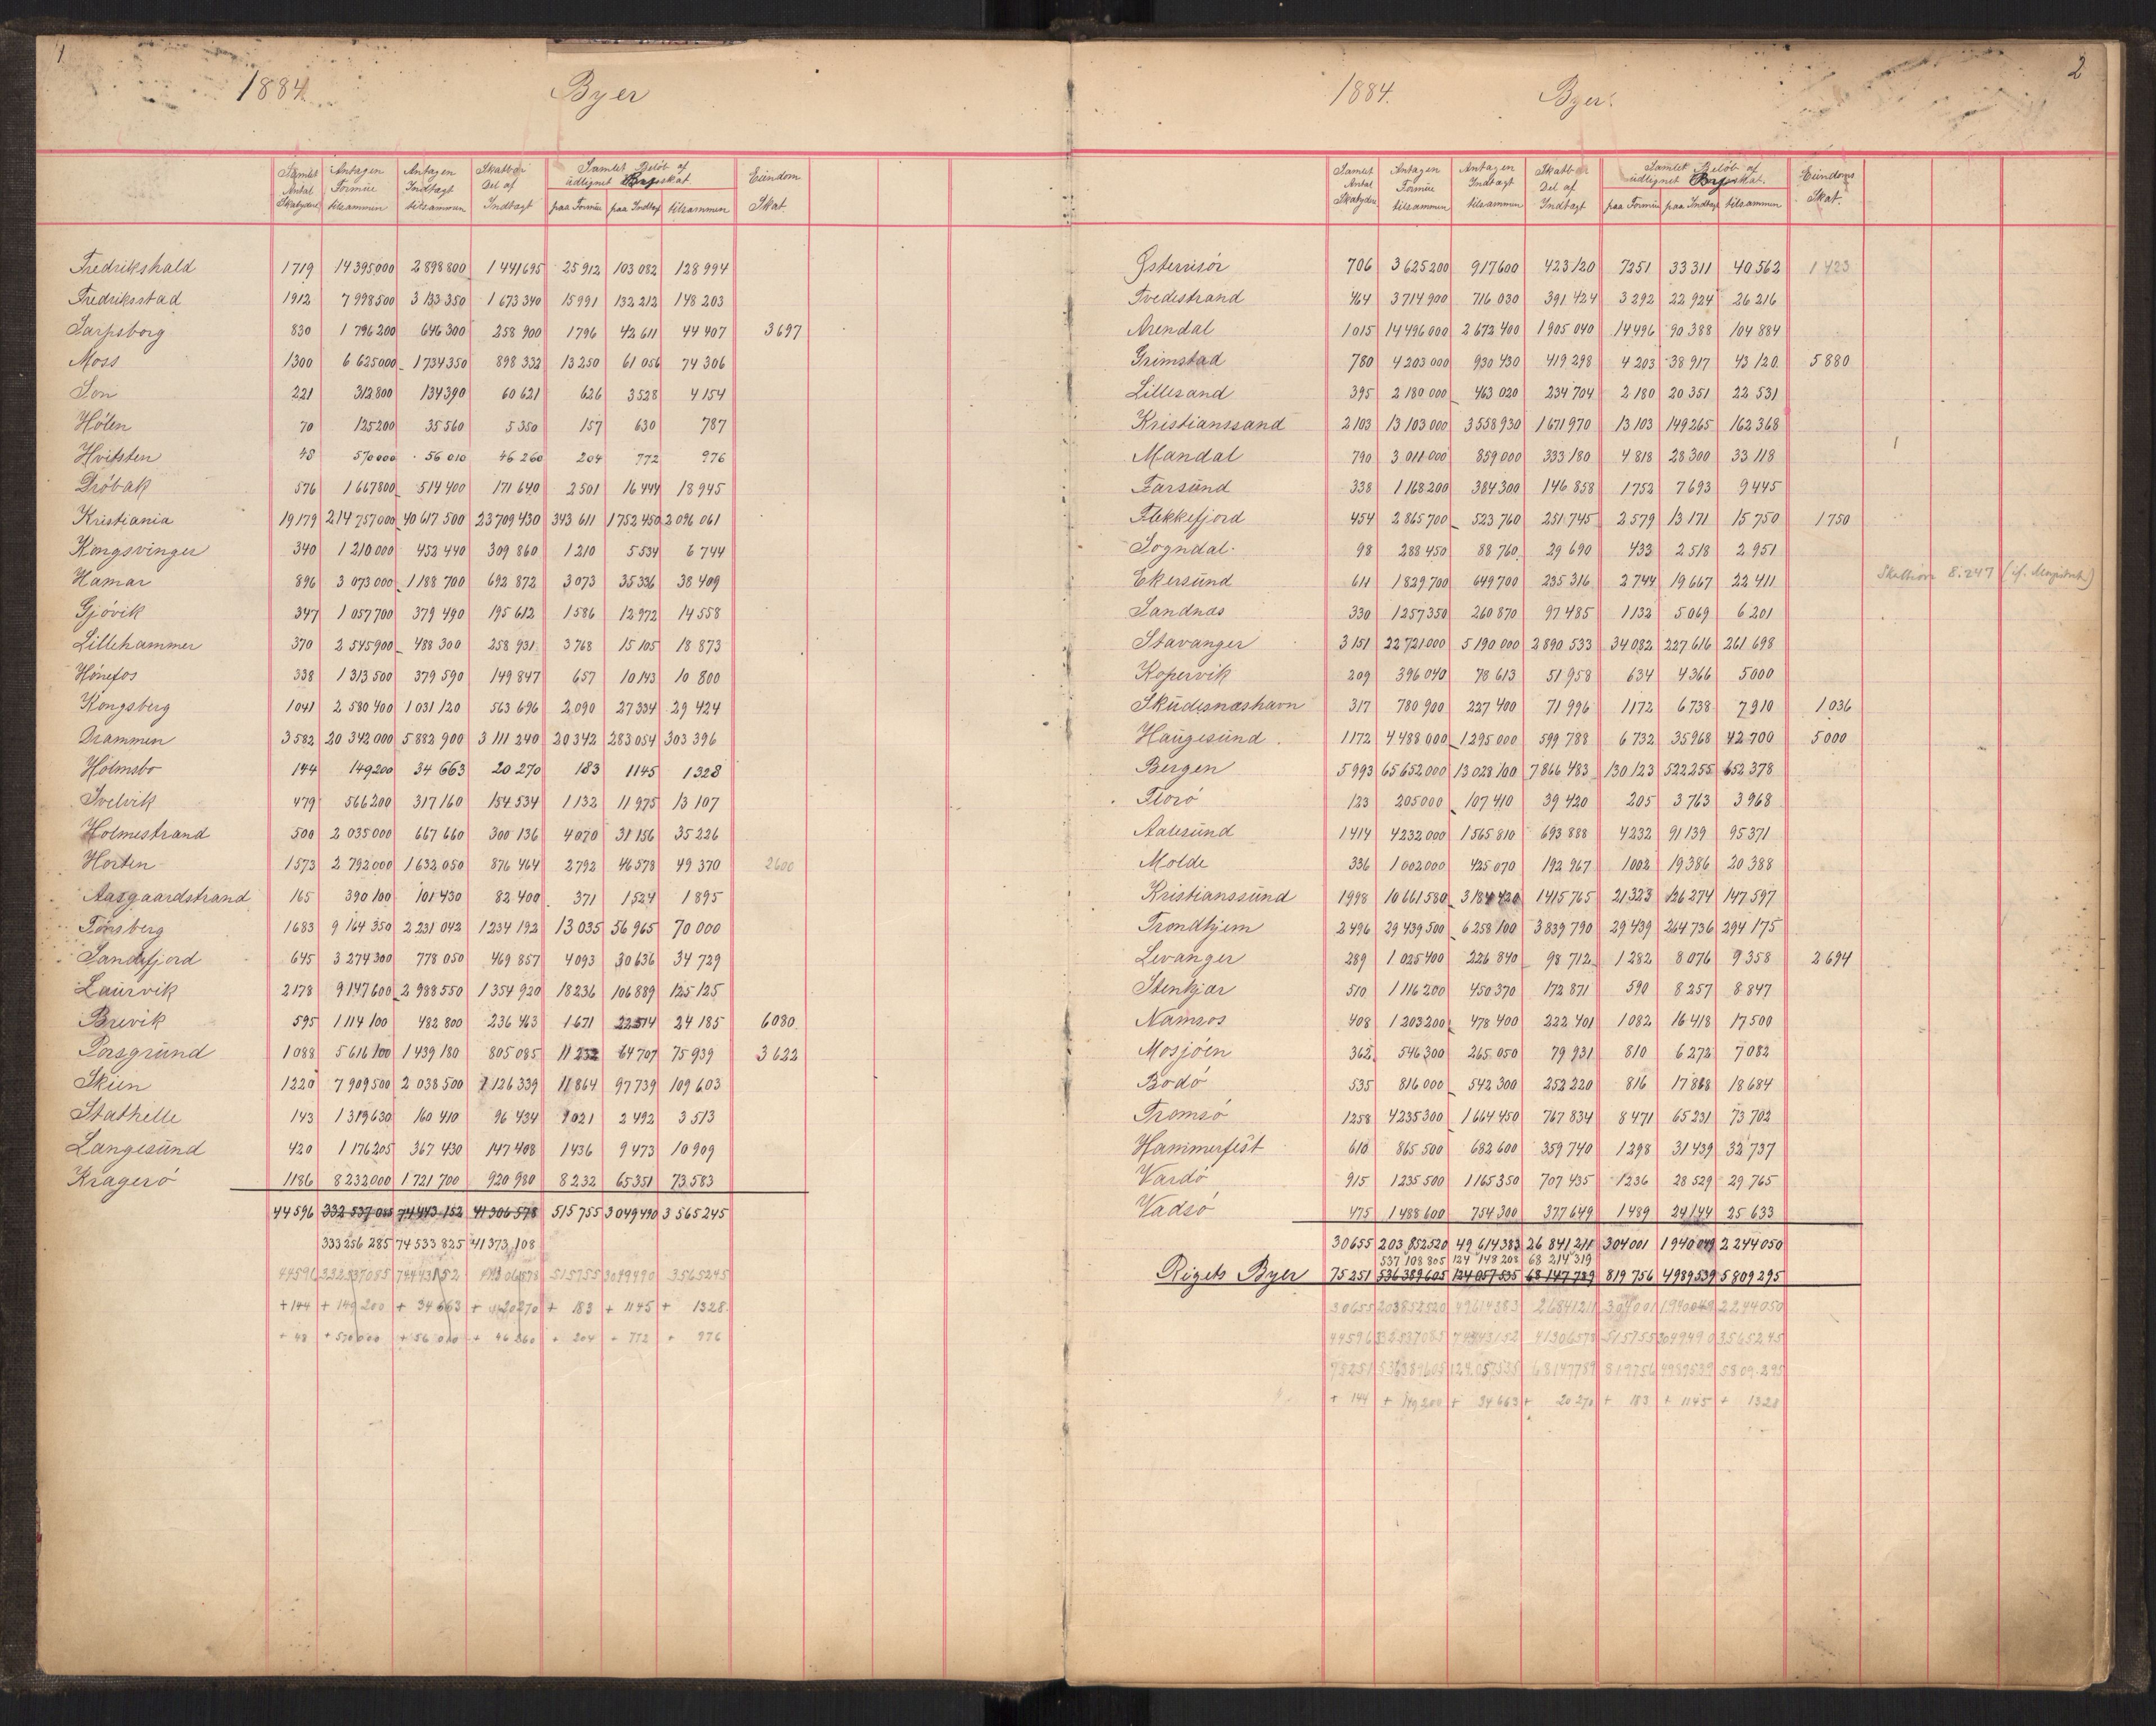 1
1884.
Byer
Samlet Antal Skatydere | Antagen Formue tilsammen | Antagen Indtægt tilsammen | Skatbar Del af Indtægt | Samlet Beløb af udlignet Byskat | paa Formue | paa Indtægt | tilsammen | Eiendom Skat
Fredrikshald 1719 14395000 2898800 1441695 25912 103082 128994
Fredriksstad 1912 7998500 3133350 1673340 15991 132212 148203
Sarpsborg 830 1796200 646300 258900 1796 42611 44407 3697
Moss 1300 6625000 1734350 898332 13250 61056 74306
Son 221 312800 134390 60621 626 3528 4154
Hölen 70 125200 35560 5350 157 630 787
Hvitsten 48 570000 56010 46260 204 772 976
Dröbak 576 1667800 514400 171640 2501 16444 18945
Kristiania 19179 214757000 40617500 23709430 343611 1752450 2096061
Kongsvinger 340 1210000 452440 309860 1210 5534 6744
Hamar 896 3073000 1188700 692872 3073 35336 38409
Gjövik 347 1057700 379490 195612 1586 12972 14558
Lillehammer 370 2545900 488300 258931 3768 15105 18873
Hönefos 338 1313500 379590 149847 657 10143 10800
Kongsberg 1041 2580400 1031120 563696 2090 27334 29424
Drammen 3582 20342000 5882900 3111240 20342 283054 303396
Holmsbo 144 149200 34663 20270 183 1145 1328
Svelvik 479 566200 317160 154534 1132 11975 13107
Holmestrand 500 2035000 667660 300136 4070 31156 35226
Horten 1573 2792000 1632050 876464 2792 46578 49370 2600
Aasgaardstrand 165 390100 101430 82400 371 1524 1895
Tönsberg 1683 9164350 2231042 1234192 13035 56965 70000
Sandefjord 645 3274300 778050 469857 4093 30636 34729
Laurvik 2178 9147600 2988550 1354920 18236 106889 125125
Brevik 595 1114100 482800 236463 1671 22514 24185 6080
Porsgrund 1088 5616100 1439180 805085 11232 64707 75939 3622
Skien 1220 7909500 2038500 1126339 11864 97739 109603
Stathelle 143 1319630 160410 96434 1021 2492 3513
Langesund 420 1176205 367430 147408 1436 9473 10909
Kragerö 1186 8232000 1721700 920980 8232 65351 73583
44596 332537085 74443152 41306578 515755 3049490 3565245
333256285 74533825 41373108
44596 332537085 74443152 41306578 515755 3049490 3565245
+ 144 + 149200 + 34663 + 20270 + 183 + 1145 + 1328
+ 48 + 570000 + 56010 + 46260 + 204 + 772 + 976
2
1884.
Byer.
Samlet Antal Skatydere | Antagen Formue tilsammen | Antagen Indtægt tilsammen | Skatbar Del af Indtægt | Samlet Beløb af udlignet Byskat. | paa Formue | paa Indtægt | tilsammen | Eiendoms Skat.
Østerrisör 706 3625200 917600 423120 7251 33311 40562 1423
Tvedestrand 464 3714900 716030 391424 3292 22924 26216
Arendal 1015 14496000 2672400 1905040 14496 90388 104884
Grimstad 780 4203000 930430 419298 4203 38917 43120 5880
Lillesand 395 2180000 463020 234704 2180 20351 22531
Kristianssand 2103 13103000 3558930 1671970 13103 149265 162368
Mandal 790 3011000 859000 333180 4818 28300 33118
Farsund 338 1168200 384300 146858 1752 7693 9445
Flekkefjord 454 2865700 523760 251745 2579 13171 15750 1750
Sogndal 98 288450 88760 29690 433 2518 2951
Ekersund 611 1829700 649700 235316 2744 19667 22411 8.247
Sandnæs 330 1257350 260870 97485 1132 5069 6201
Stavanger 3151 22721000 5190000 2890533 34082 227616 261698
Kopervik 209 396040 78613 51958 634 4366 5000
Skudesnæshavn 317 780900 227400 71996 1172 6738 7910 1036
Haugesund 1172 4488000 1295000 599788 6732 35968 42700 5000
Bergen 5993 65652000 13028100 7866483 130123 522255 652378
Florö 123 205000 107410 39420 205 3763 3968
Aalesund 1414 4232000 1565810 693888 4232 91139 95371
Molde 336 1002000 425070 192967 1002 19386 20388
Kristianssund 1998 10661580 3184420 1415765 21323 126274 147597
Trondhjem 2496 29439500 6258100 3839790 29439 264736 294175
Levanger 289 1025400 226840 98712 1282 8076 9358 2694
Stenkjær 510 1116200 450370 172871 590 8257 8847
Namsos 408 1203200 478400 222401 1082 16418 17500
Mosjöen 362 546300 265050 79931 810 6272 7082
Bodö 535 816000 542300 252220 816 17868 18684
Tromsö 1258 4235300 1664450 767834 8471 65231 73702
Hammerfest 610 865500 682600 359740 1298 31439 32737
Vardö 915 1235500 1165350 707435 1236 28529 29765
Vadsö 475 1488600 754300 377649 1489 24144 25633
30655 203852520 49614383 26841211 304001 1940049 2244050
537108805 124148208 68214319
Rigets Byer 75251 536389605 124057535 68147789 819756 4989539 5809295
30655 203852520 49614383 26841211 304001 1940049 2244050
44596 332537085 74443152 41306578 515755 3049490 3565245
75251 536389605 124.057535 68147789 819756 4989539 5809.295
+ 144 + 149200 + 34663 + 20270 + 183 + 1145 + 1328